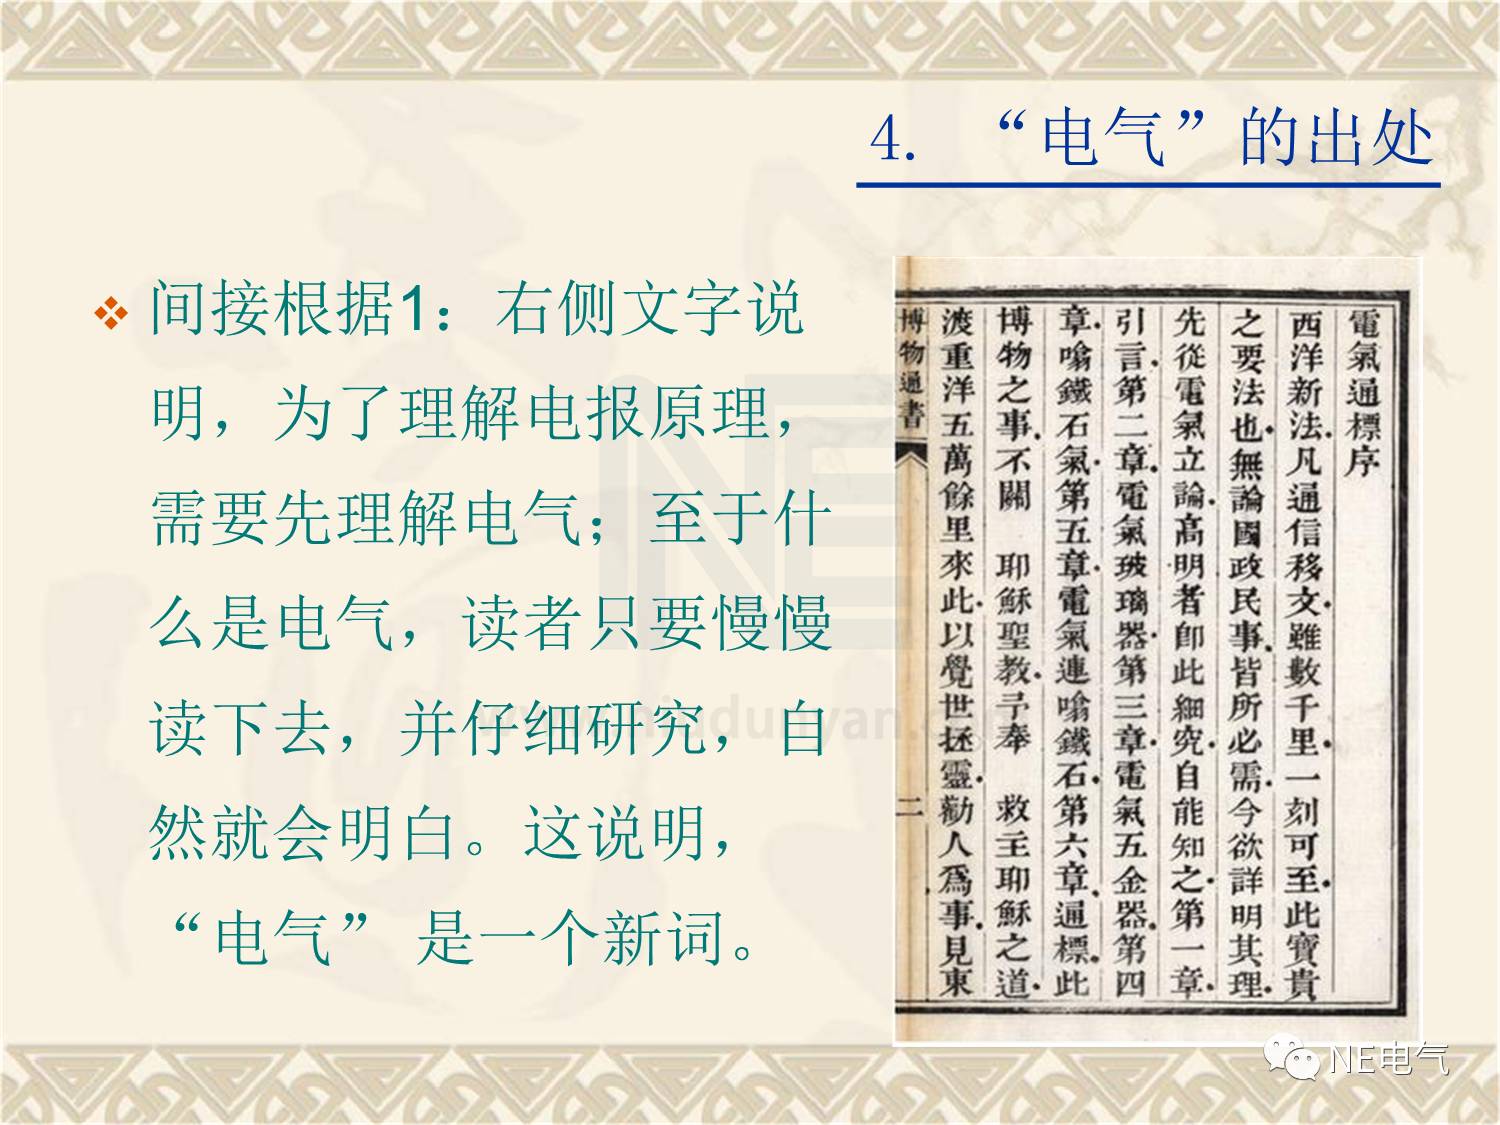 4. “电气”的出处
间接根据1：右侧文字说
明，为了理解电报原理，
需要先理解电气；至于什
么是电气，读者只要慢慢
读下去，并仔细研究，自
然就会明白。这说明，
“电气” 是一个新词。
電氣通標序
西洋新法凡通信移文雖數千里一刻可至此寶貴
之要法也無論國政民事皆所必需今欲詳明其理
先從電氣立論高明者卽此細究自能知之第一章
引言第二章電氣玻璃器第三章電氣五金器第四
章噏鐵石氣第五章電氣連噏鐵石第六章通標此
博物之事不關 耶穌聖教予奉 救主耶穌之道
渡重洋五萬餘里來此以覺世拯靈勸人爲事見東
博物通書
二
NE
www.niudunyan.com
NE电气